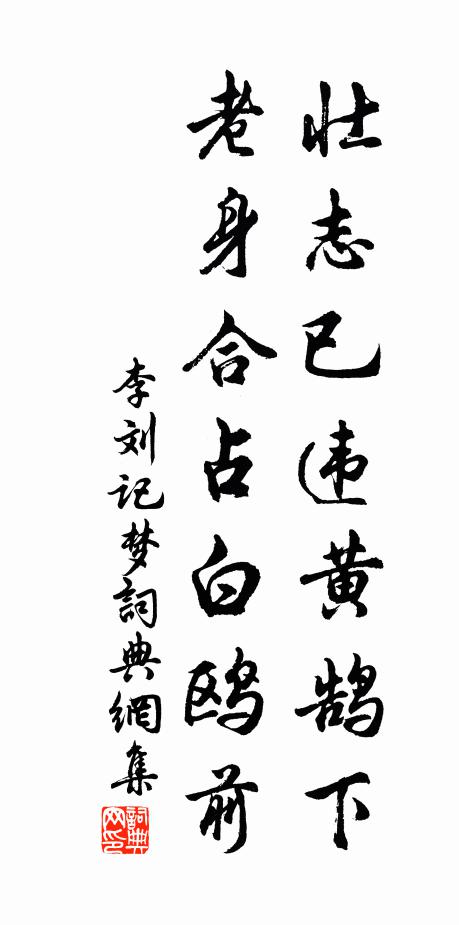 壮志已违黄鹄下
老身合占白鸥前
李刘记梦詞典網集
詞典网印